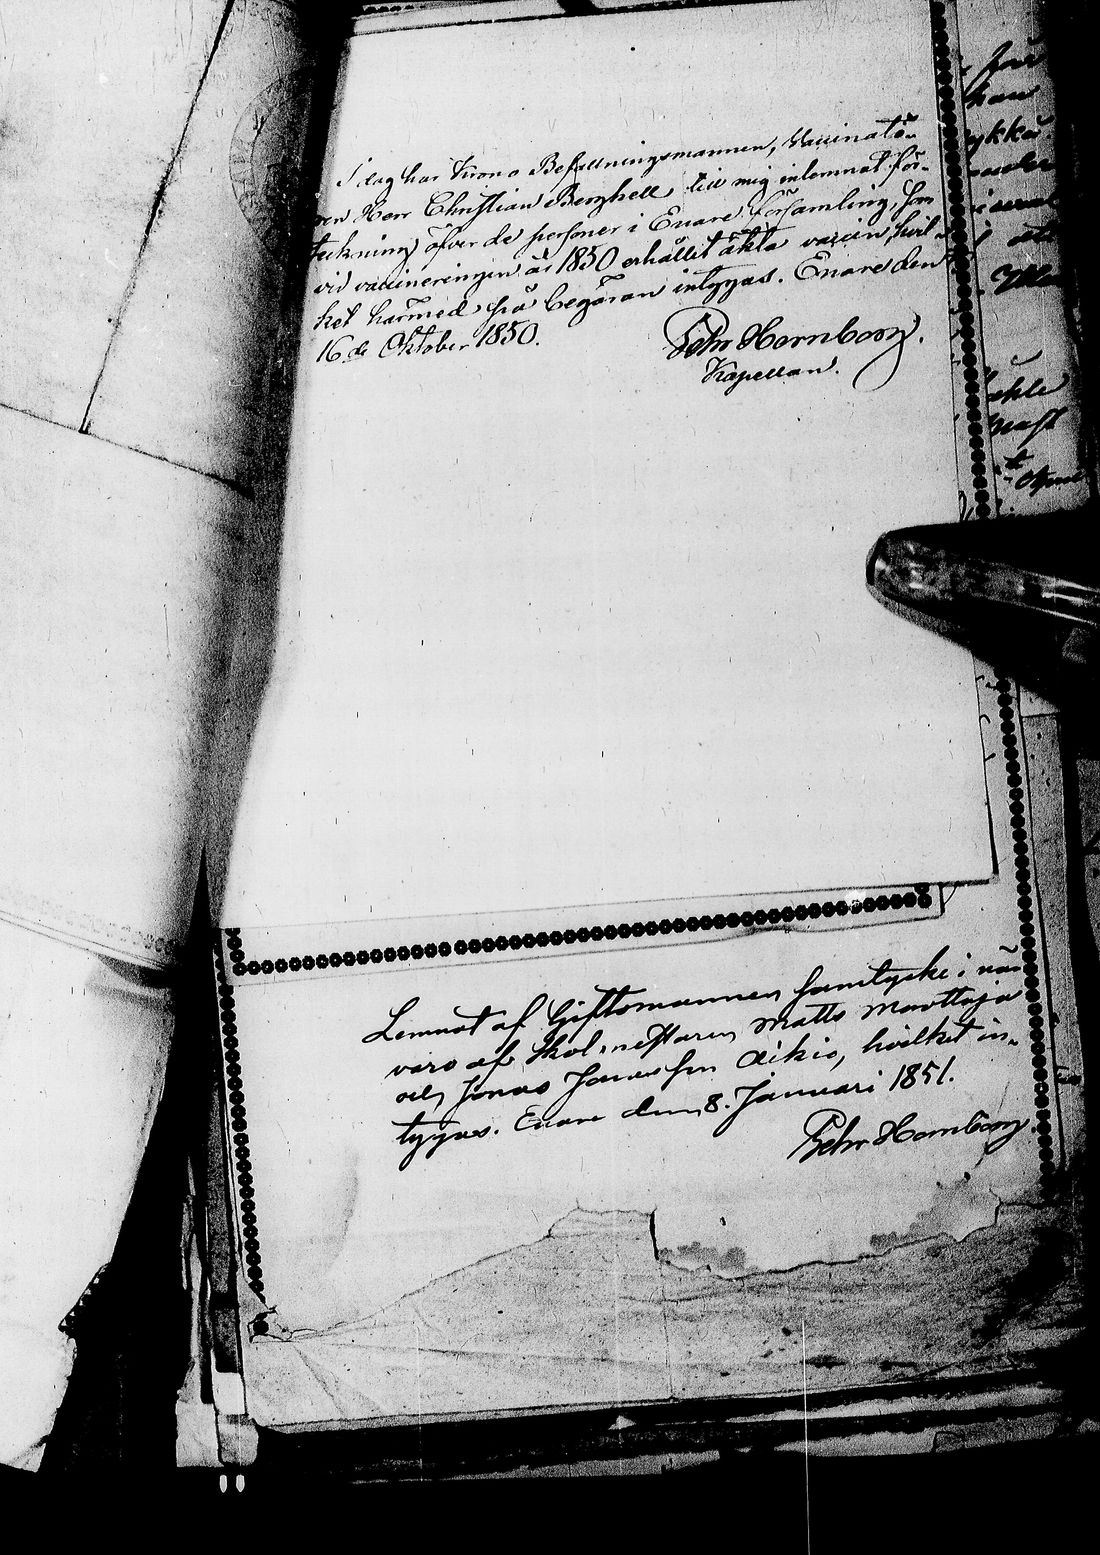 I dag har Krono Befallningsmannen, Vaccinatö-
ren Herr Christian Berghell till mig inlemnat för-
teckning öfver de personer i Enare församling, som
vid vaccineringen år 1850 erhållit äkta vaccin, hvil-
ket härmed på begäran intygas. Enare den
16de Oktober 1850.
Pehr Hornborg.
Kapellan.
Lemnat af Giftomannen samtycke i nä-
varo af Skolmästaren Matts Marttaja
och Jonas Jonasson Aikio, hvilket in-
tygas. Enare den 8. Januari 1851.
Pehr Hornborg.